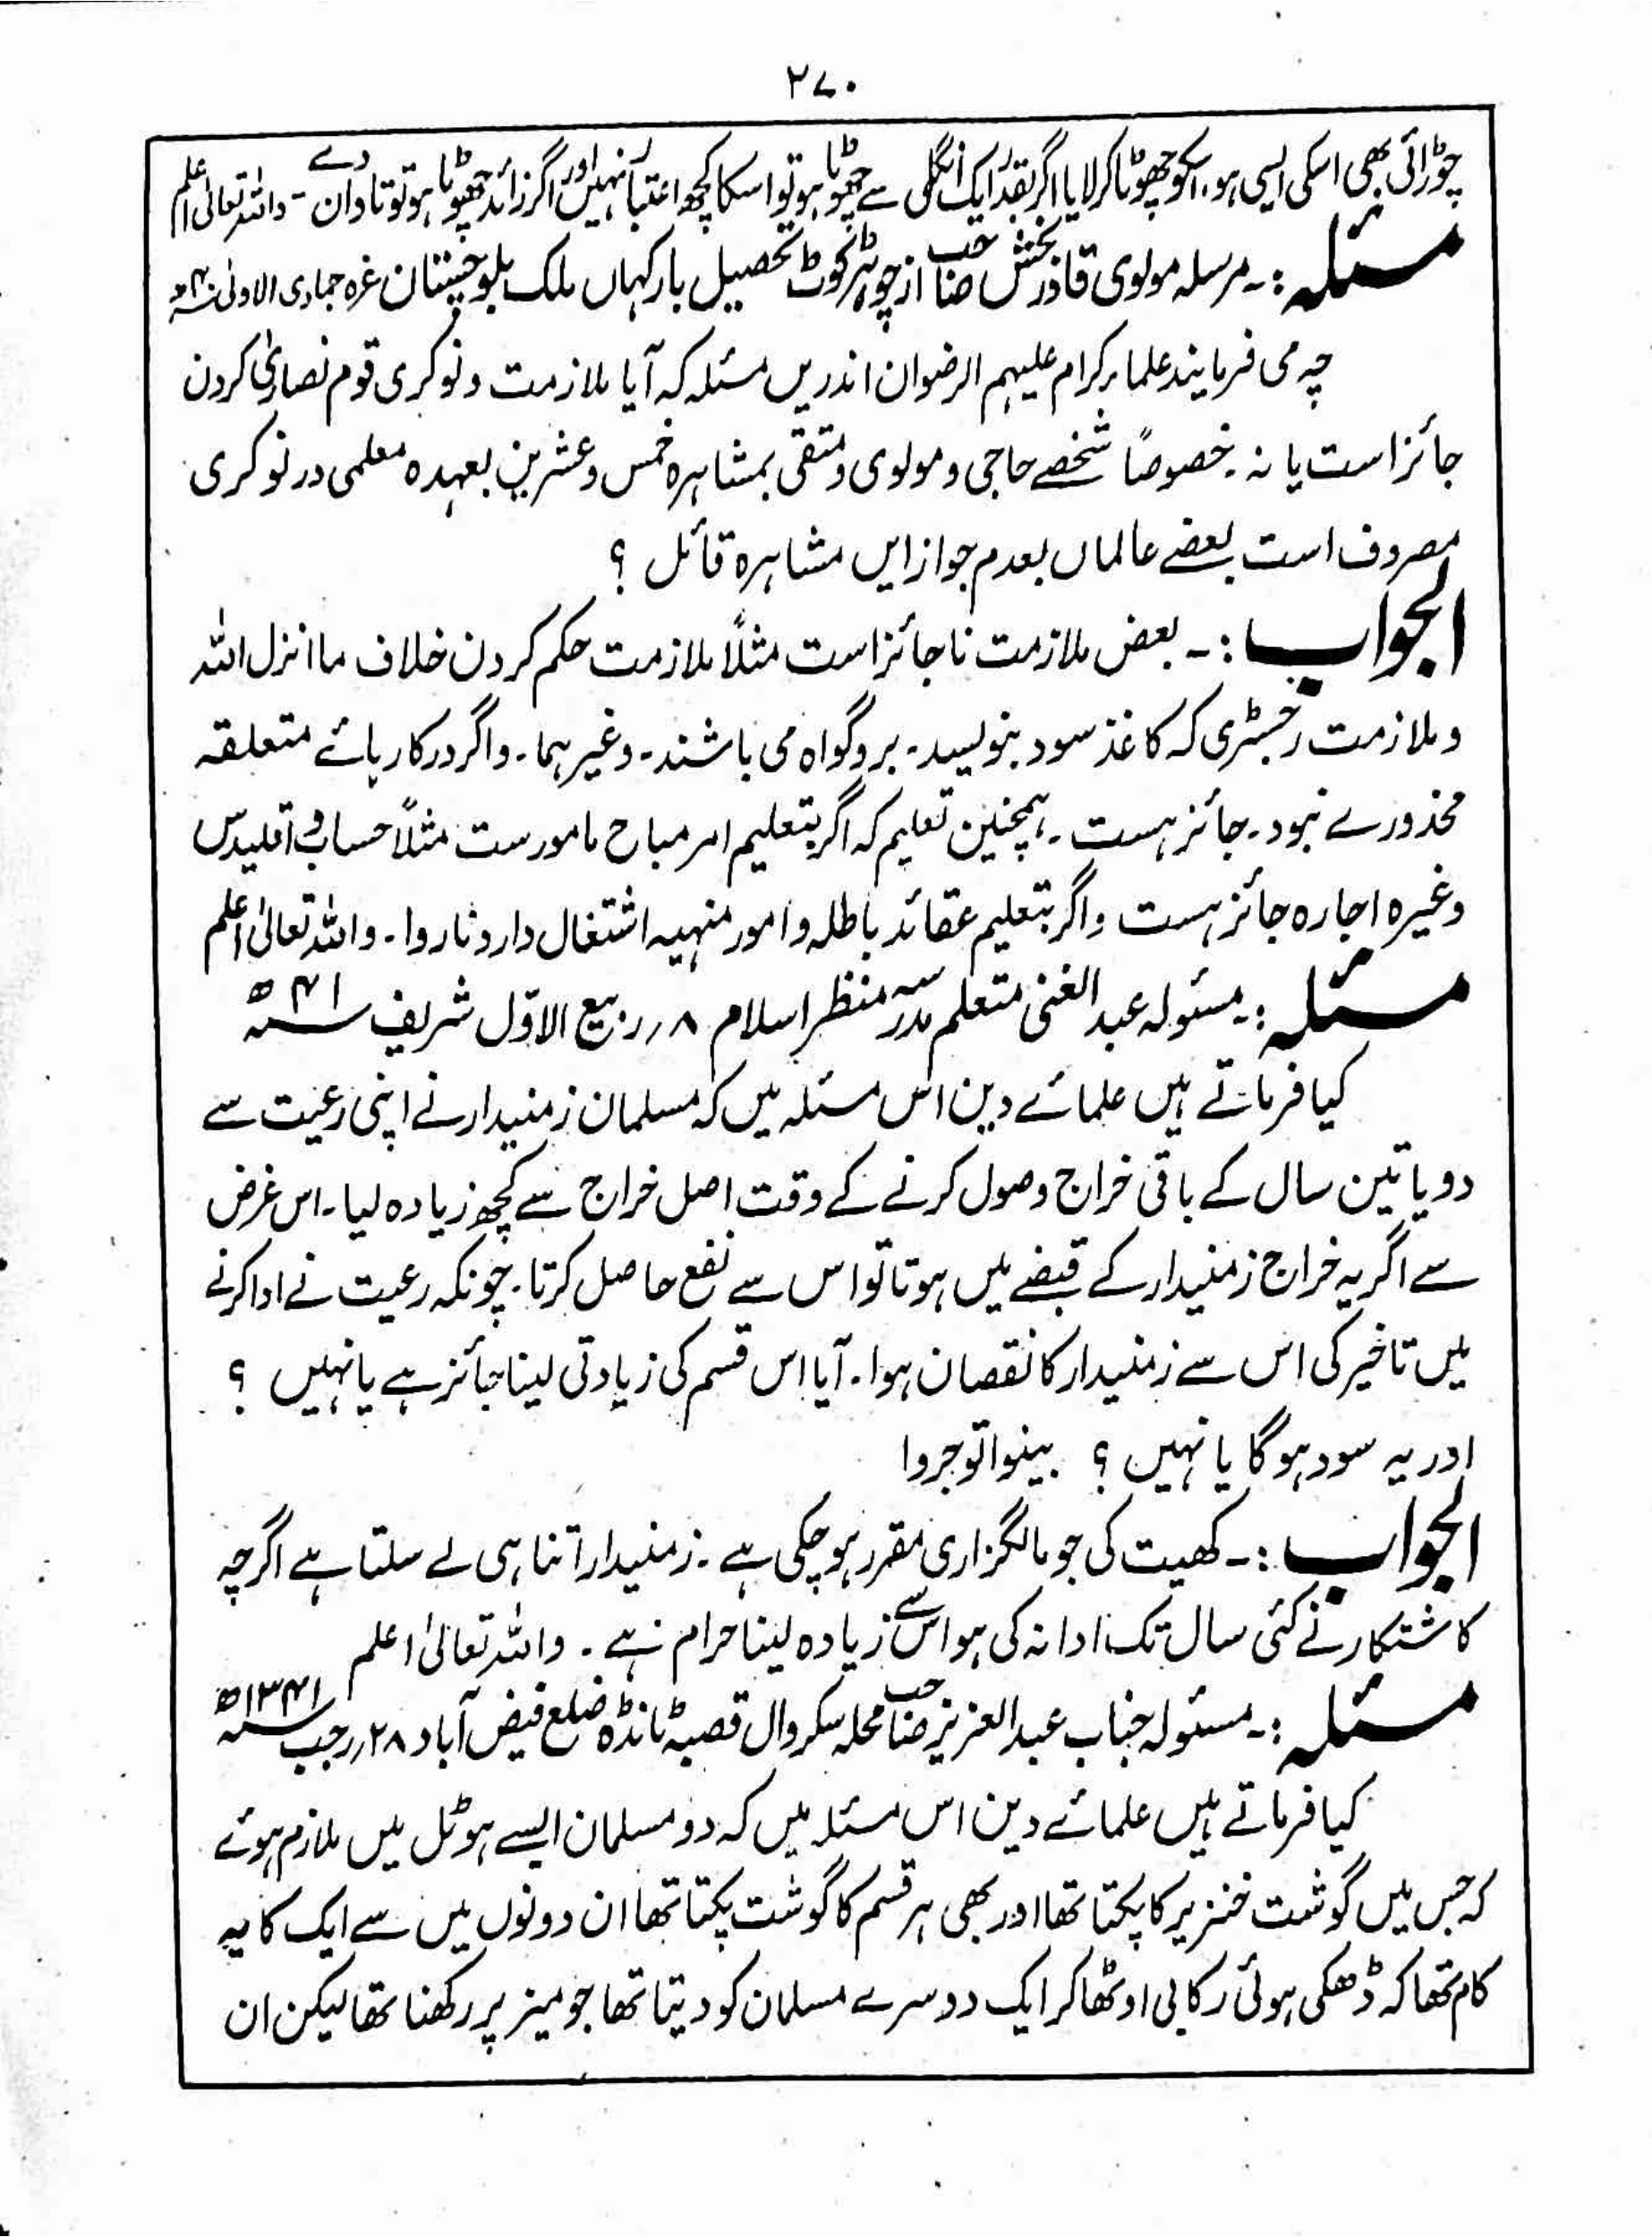 ۲۷۰
چوڑائی بھی اسکی ایسی ہو، اسکو چھوٹا کر لایا اگر بقدر ایک انگلی سے چھوٹا ہو تو اسکا کچھ اعتبار نہیں اور اگر زائد چھوٹا ہو تو تاوان دے ۔ واللہ تعالیٰ اعلم
مسئلہ :۔ مرسلہ مولوی قادر بخش صاحب از چوہڑ کوٹ تحصیل بارکہاں ملک بلوچستان غرہ جمادی الاولیٰ
چہ می فرمایند علمائے کرام علیہم الرضوان اندریں مسئلہ کہ آیا ملازمت و نوکری قوم نصاریٰ کردن
جائز است یا نہ ۔ خصوصاً شخصے حاجی و مولوی و متقی بمشاہرہ خمس و عشرین بعہدہ معلمی در نوکری
مصروف است بعضے عالماں بعدم جواز ایں مشاہرہ قائل ؟
الجواب :۔ بعض ملازمت ناجائز است مثلاً ملازمت حکم کردن خلاف ما انزل اللہ
و ملازمت رجسٹری کہ کاغذ سود بنویسد ۔ بروگواہ می باشند ۔ وغیرہما ۔ واگر درکارہائے متعلقہ
محذورے نبود ۔ جائز ہست ۔ ہمچنین تعلیم کہ اگر بتعلیم امر مباح مامورست مثلاً حساب و اقلیدس
وغیرہ اجارہ جائز ہست و اگر بتعلیم عقائد باطلہ و امور منہیہ اشتغال دارد ناروا ۔ واللہ تعالیٰ اعلم
مسئلہ :۔ مسئولہ عبد الغنی متعلم مدرسہ منظر اسلام ۸؍ ربیع الاوّل شریف سنہ ۴۱ھ
کیا فرماتے ہیں علمائے دین اس مسئلہ میں کہ مسلمان زمیندار نے اپنی رعیت سے
دو یا تین سال کے باقی خراج وصول کرنے کے وقت اصل خراج سے کچھ زیادہ لیا ۔ اس غرض
سے اگر یہ خراج زمیندار کے قبضے میں ہوتا تو اس سے نفع حاصل کرتا ۔ چونکہ رعیت نے ادا کرنے
میں تاخیر کی اس سے زمیندار کا نقصان ہوا ۔ آیا اس قسم کی زیادتی لینا جائز ہے یا نہیں ؟
اور یہ سود ہوگا یا نہیں ؟ بینوا توجروا
الجواب :۔ کھیت کی جو مالگزاری مقرر ہو چکی ہے ۔ زمیندار اتنا ہی لے سلتا ہے اگرچہ
کاشتکار نے کئی سال تک ادا نہ کی ہو اس سے زیادہ لینا حرام ہے ۔ واللہ تعالیٰ اعلم
مسئلہ :۔ مسئولہ جناب عبد العزیز صاحب محلہ سکروال قصبہ ٹانڈہ ضلع فیض آباد ۲۸؍ رجب سنہ ۱۳۴۱ھ
کیا فرماتے ہیں علمائے دین اس مسئلہ میں کہ دو مسلمان ایسے ہوٹل میں ملازم ہوئے
کہ جس میں گوشت خنزیر کا پکتا تھا اور بھی ہر قسم کا گوشت پکتا تھا ان دونوں میں سے ایک کا یہ
کام تھا کہ ڈھکی ہوئی رکابی اوٹھا کر ایک دوسرے مسلمان کو دیتا تھا جو میز پر رکھنا تھا لیکن ان